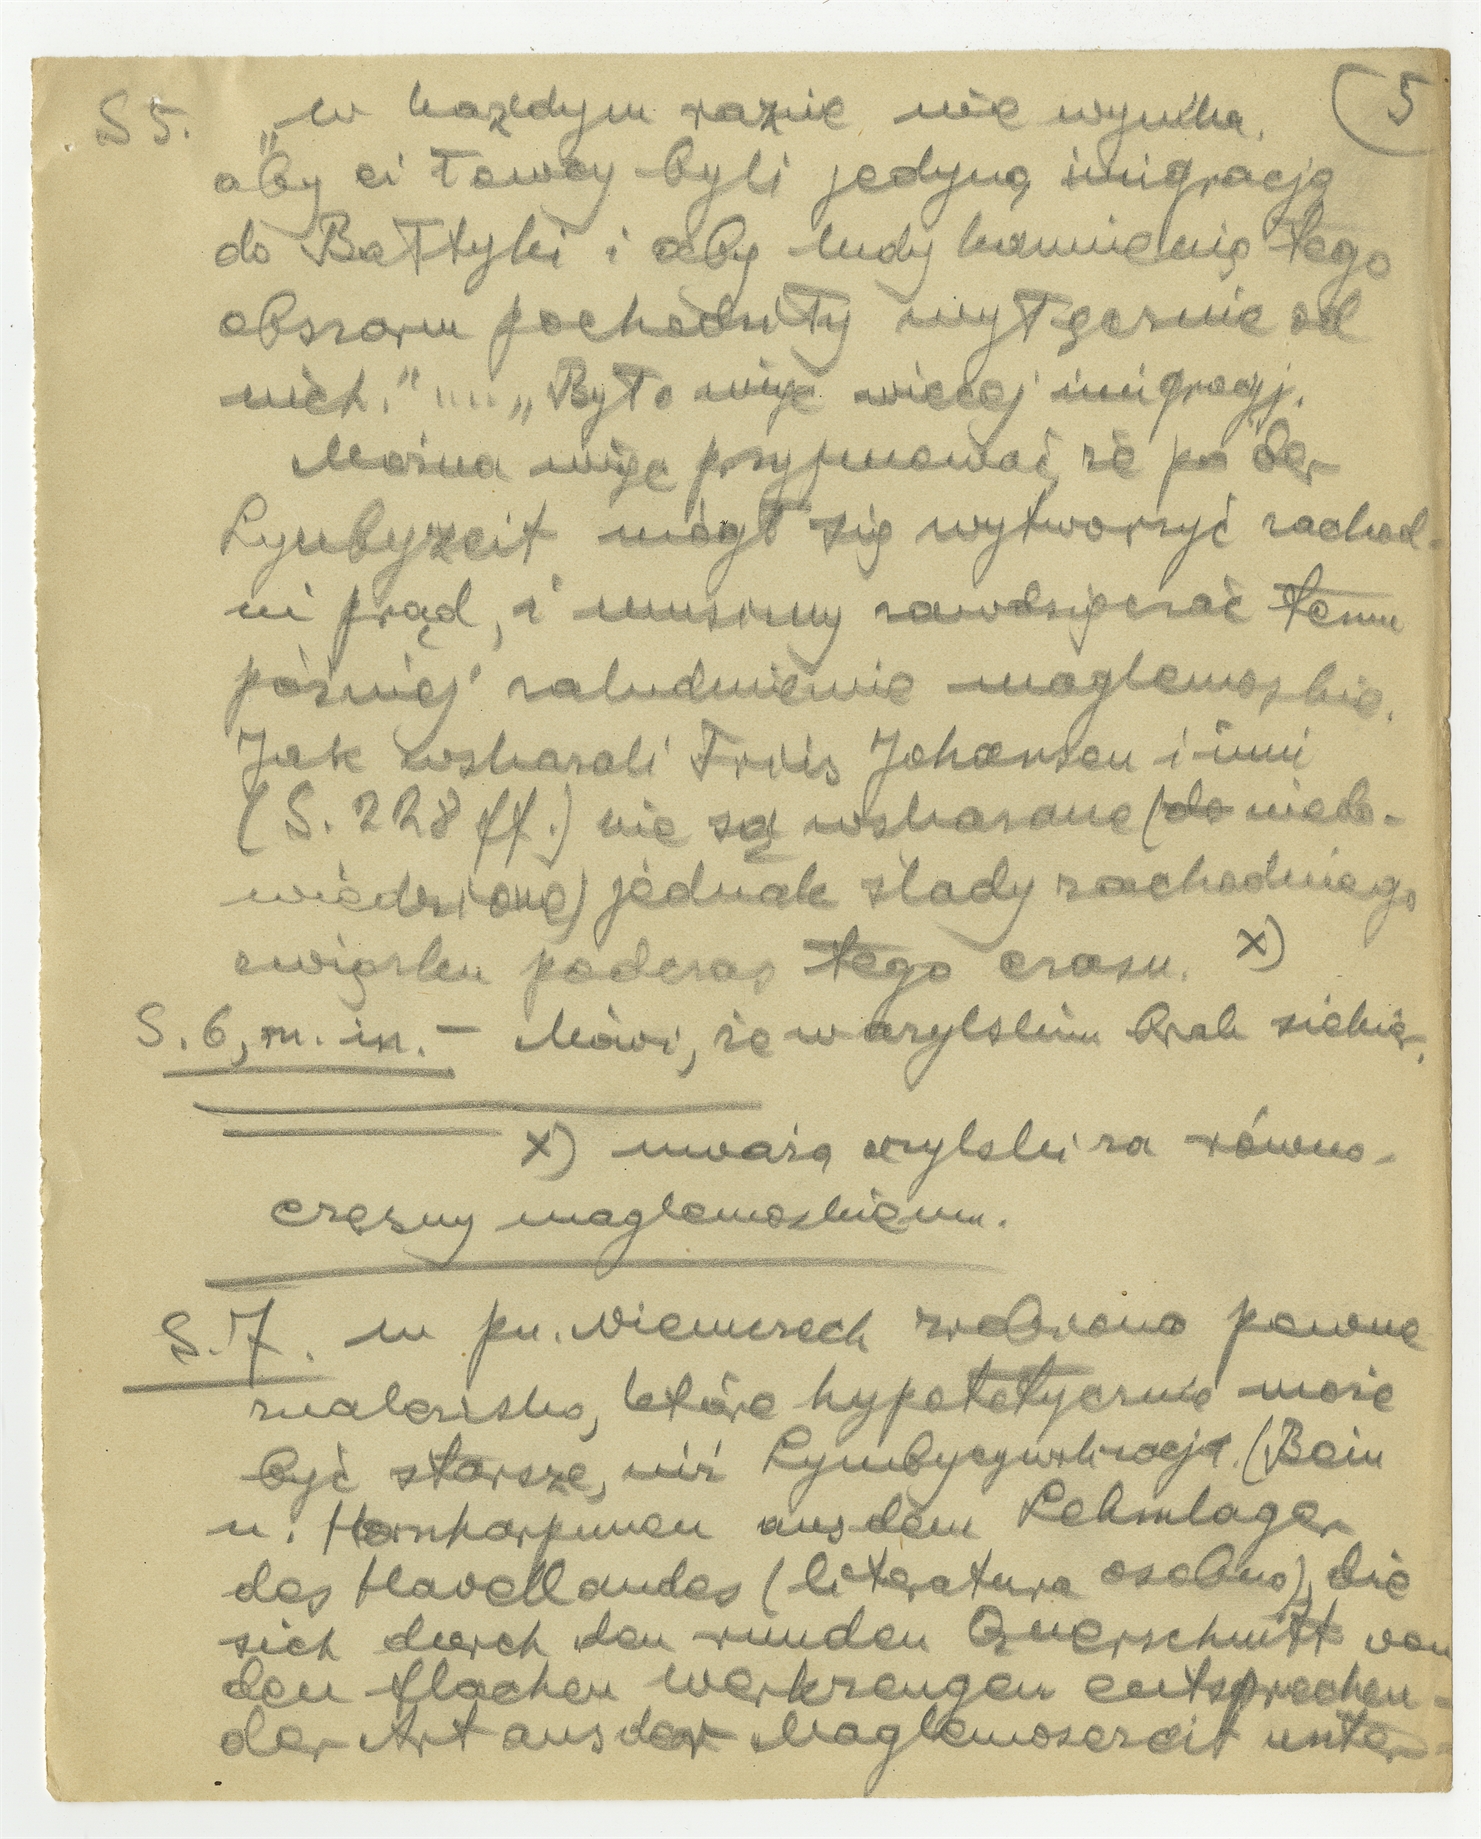 5
S 5. „w każdym razie nie wynika,
aby ci łowcy byli jedyną imigracją
do Bałtyki i aby ludy kamienia tego
obszaru pochodziły wyłącznie od
nich.” .... „Było więc więcej imigracyj.
Można więc przyjmować, że po der
Lyngbyzeit mógł się wytworzyć zachod-
ni prąd, i musimy zawdzięczać temu
później zaludnienie maglemoskie.
Jak wskazali Friis Johansen i inni
(S. 228 ff.) nie są wskazane (do niedo-
wiedzione) jednak ślady zachodniego
związku podczas tego czasu. x)
S. 6, m. in. – Mówi, że w azylskim brak siekier.
x) uważa azylski za równo-
czesny maglemoskiemu.
S. 7. w pn. Niemczech zrobiono pewne
znalezisko, które hypotetycznie może
być starsze, niż Lyngbycywilizacja. (Bein
u. Hornharpunen aus dem Lehmlager
des Havellandes (literatura osobno), die
sich durch den runden Querschnitt von
den flachen Werkzeugen entsprechen-
der Art aus der Maglemosezeit unter-